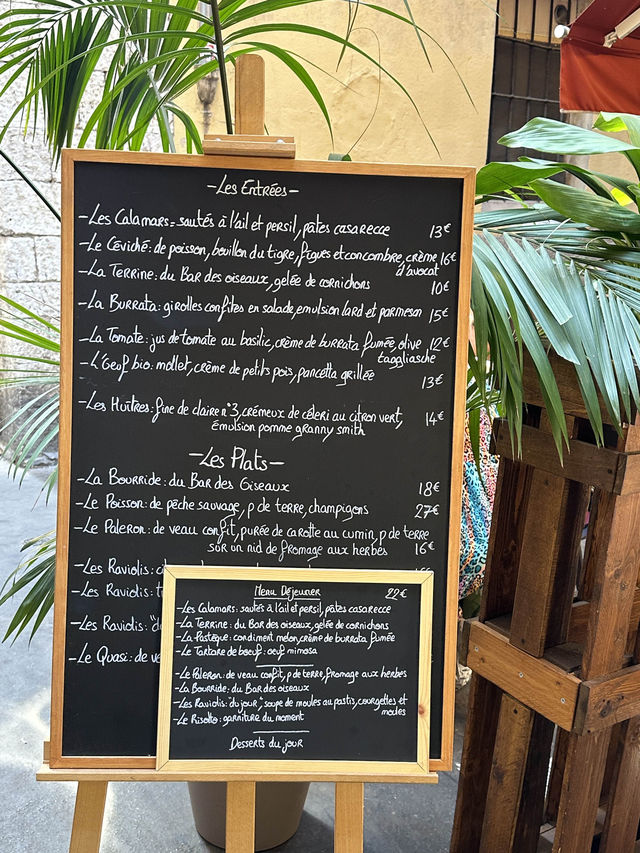 -Les Entrées-
-Les Calamars: sautés à l'ail et persil, pâtes casarecce 13€
-Le Céviché: de poisson, bouillon du tigre, figues et concombre, crème 16€
d'avocat
-La Terrine: du Bar des oiseaux, gelée de cornichons 10€
-La Burrata: girolles confites en salade, emulsion lard et parmesan 15€
-La Tomate: jus de tomate au basilic, crème de burrata fumée, olive 12€
taggliasche
-L'Oeuf bio: mollet, crème de petits pois, pancetta grillée 13€
-Les Huîtres: fine de claire n°3, crémeux de céleri au citron vert, 14€
émulsion pomme granny smith
-Les Plats-
-La Bourride: du Bar des Oiseaux 18€
-Le Poisson: de pêche sauvage, p de terre, champignons 27€
-Le Paleron: de veau confit, purée de carotte au cumin, p de terre
sur un nid de fromage aux herbes 16€
-Les Raviolis:
-Les Raviolis:
-Les Raviolis: "d
-Le Quasi: de ve
Menu Déjeuner 22€
-Les Calamars: sautés à l'ail et persil, pâtes casarecce
-La Terrine: du Bar des oiseaux, gelée de cornichons
-La Pastèque: condiment melon, crème de burrata fumée
-Le Tartare de bœuf: œuf mimosa
-Le Paleron: de veau confit, p de terre, fromage aux herbes
-La Bourride: du Bar des oiseaux
-Les Raviolis: "du jour", soupe de moules au pastis, courgettes et
moules
-Le Risotto: garniture du moment
Desserts du jour